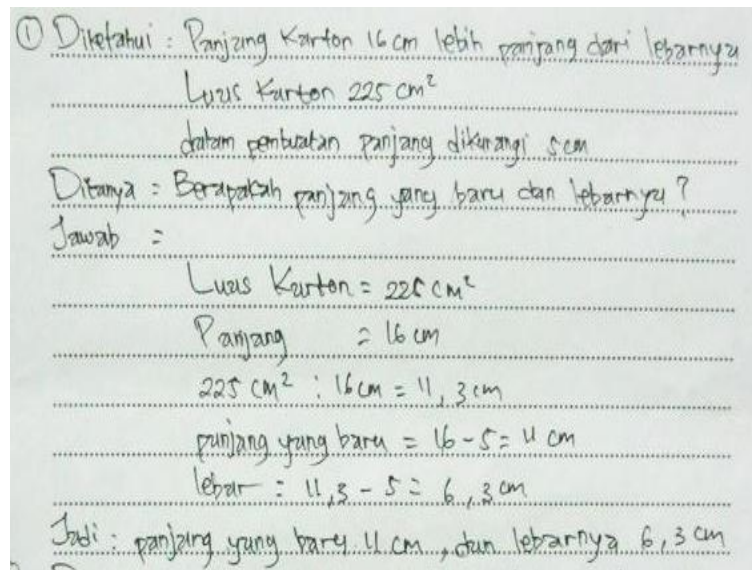 ① Diketahui : Panjang Karton 16 cm lebih panjang dari lebarnya
Luas Karton 225 cm²
dalam pembuatan panjang dikurangi 5 cm
Ditanya : Berapakah panjang yang baru dan lebarnya ?
Jawab :
Luas Karton = 225 cm²
Panjang = 16 cm
225 cm² : 16 cm = 11,3 cm
panjang yang baru = 16 - 5 = 11 cm
lebar = 11,3 - 5 = 6,3 cm
Jadi : panjang yang baru 11 cm , dan lebarnya 6,3 cm